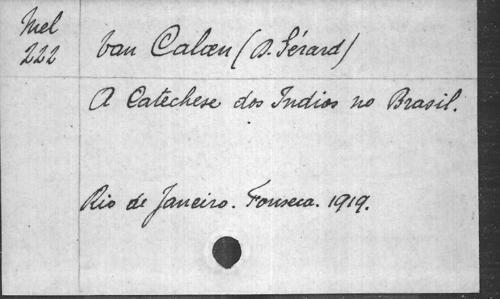 Mel
222
van Caloen (D. Gérard)
A Catechese dos Indios no Brasil.
Rio de Janeiro. Fonseca. 1919.